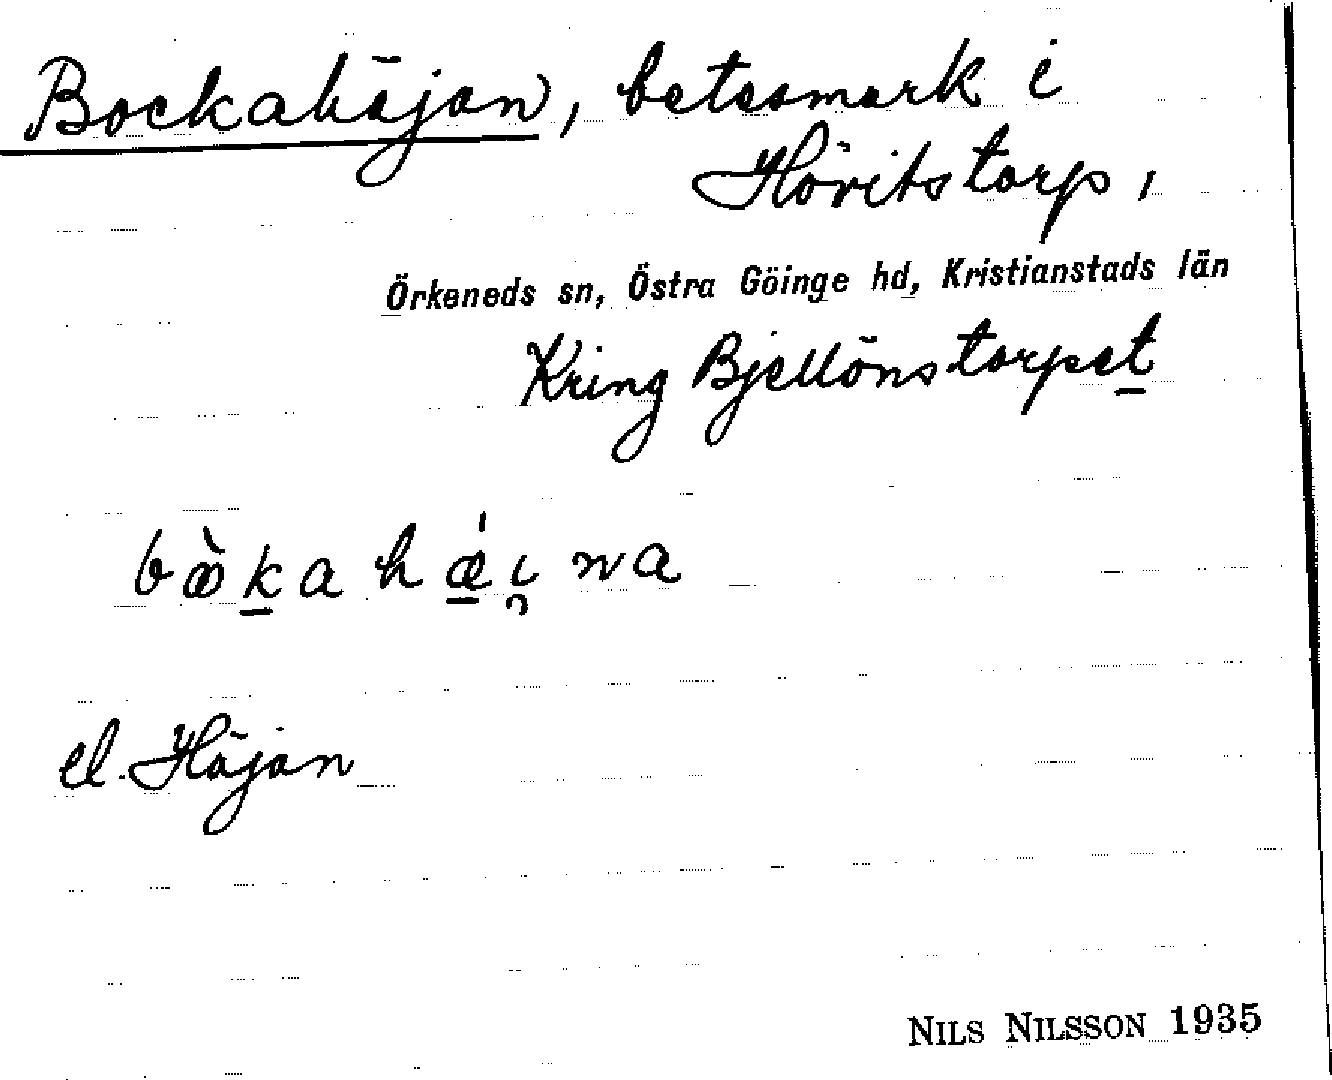 Bockahäjan, betesmark i
Hövitstorp,
Örkeneds sn, Östra Göinge hd, Kristianstads län
Kring Bjellönstorpet
el. Häjan
NILS NILSSON 1935